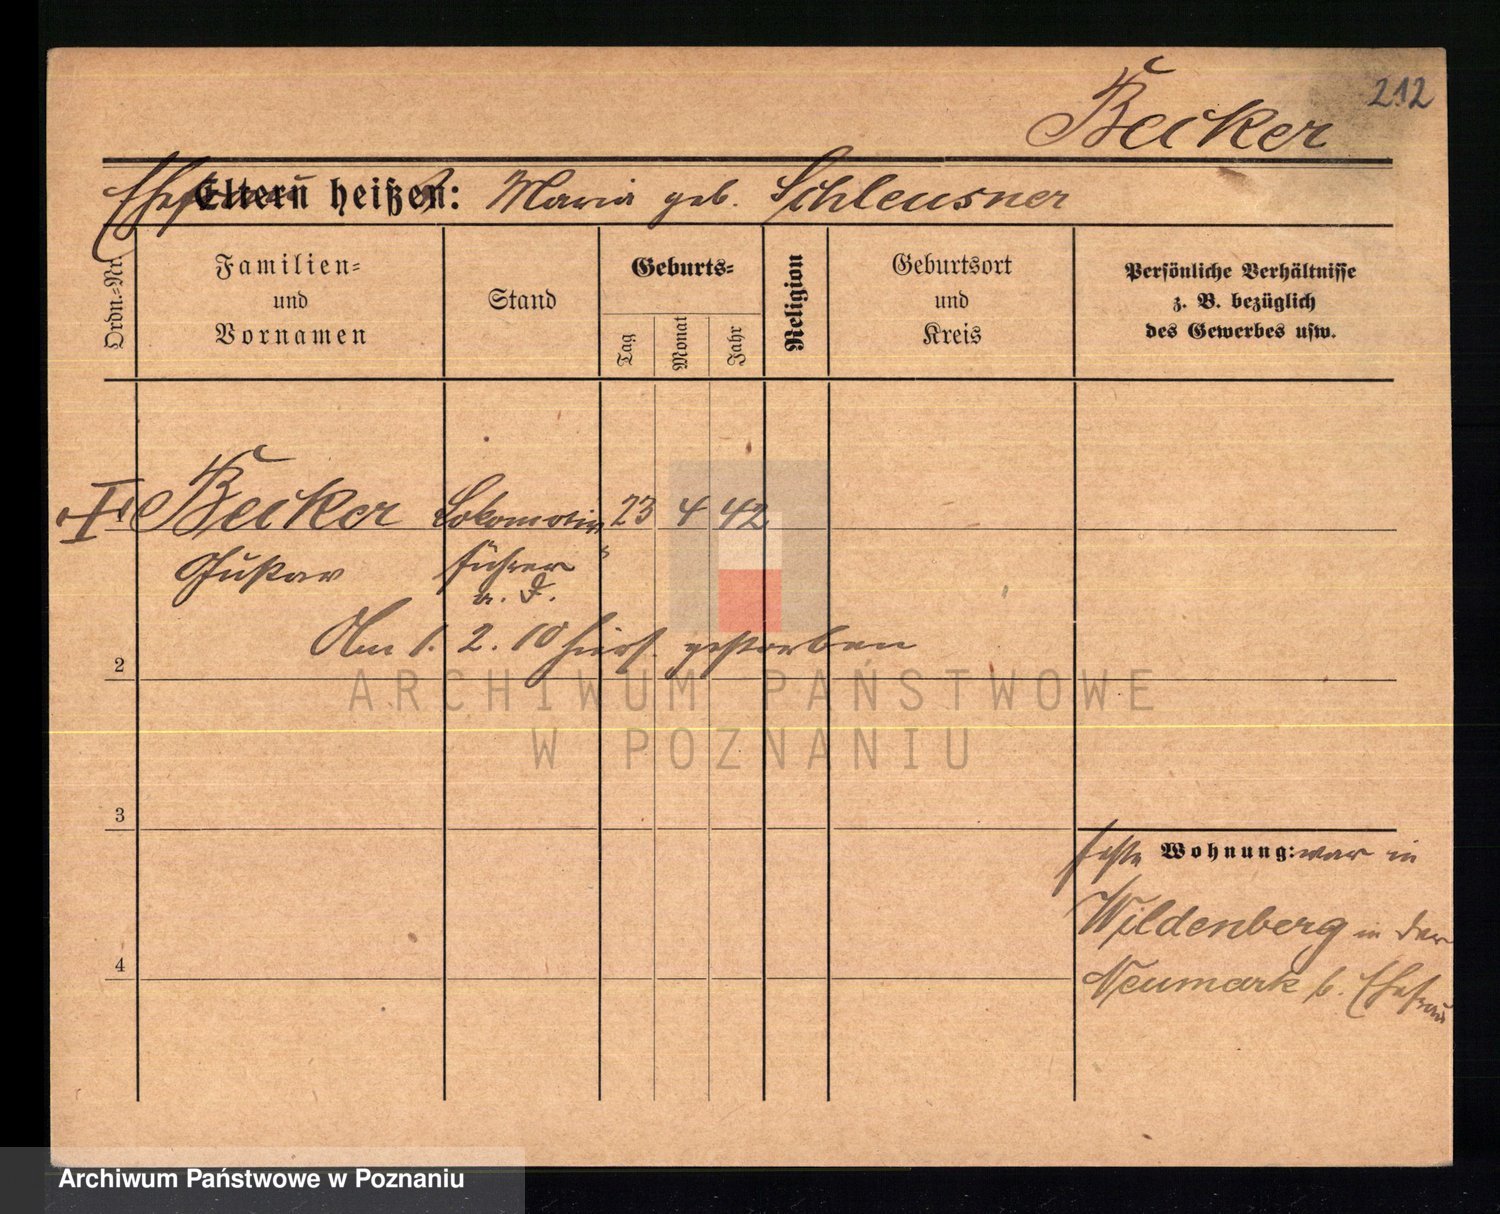 212
Becker
Ehefrau
Eltern heißen: Maria geb. Schleusner
Ordn.-Nr.
Familien-
und
Vornamen
Stand
Geburts-
Tag
Monat
Jahr
Religion
Geburtsort
und
Kreis
Persönliche Verhältnisse
z. B. bezüglich
des Gewerbes usw.
I 1 Becker Lokomotiv 23 4 42
Gustav führer
a. D.
Am 1. 2. 10 hier gestorben
2
ARCHIWUM PAŃSTWOWE
W POZNANIU
3
feste Wohnung: war in
Wildenberg in der
4
Neumark b. Ehefrau
Archiwum Państwowe w Poznaniu